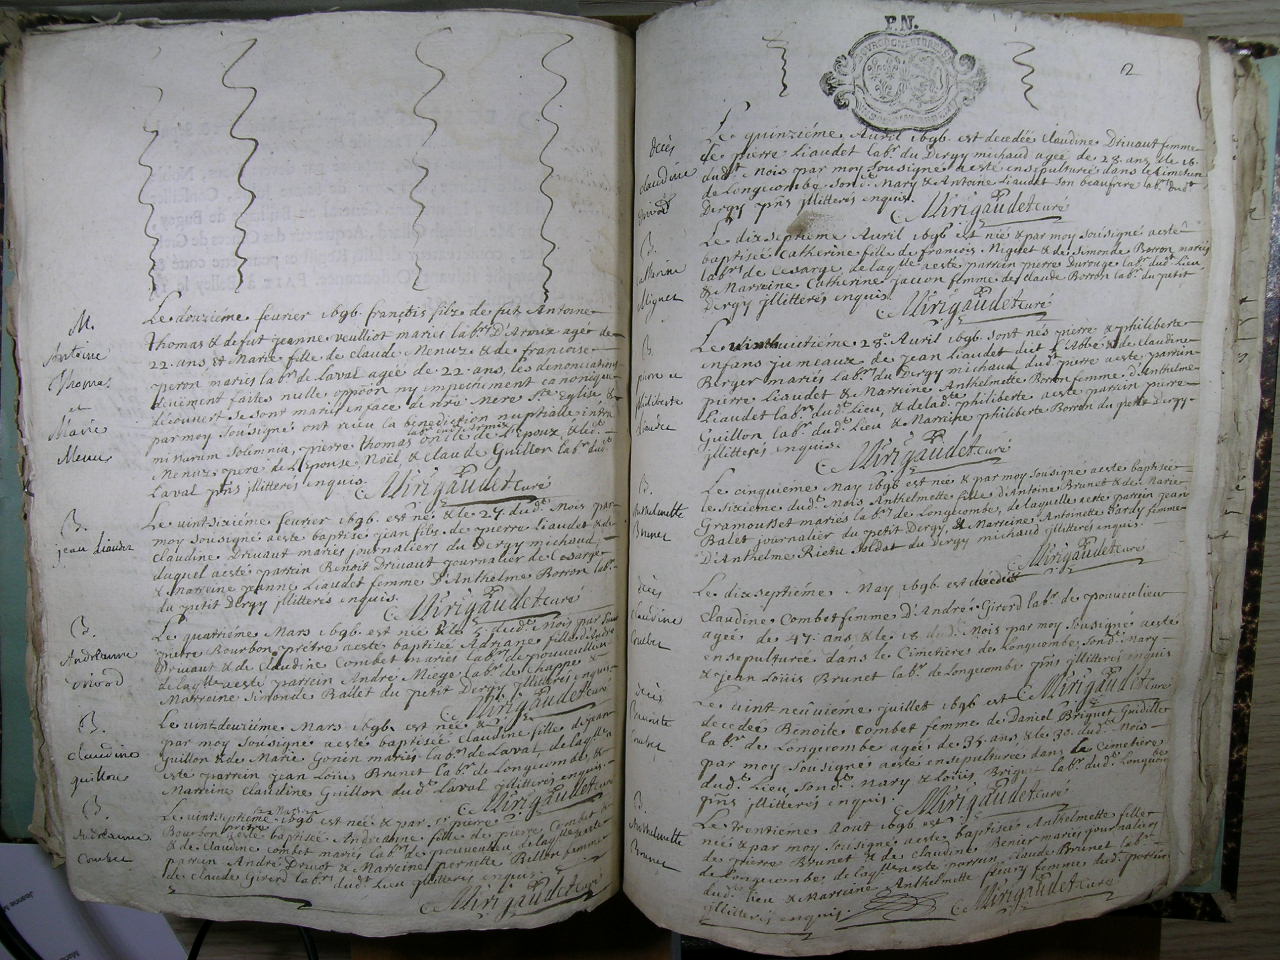 M.
Antoine
Thomas
et
Marie
Menuz
Le douzieme fevrier 1696 françois filz de fut Antoine
Thomas & de fut jeanne veulliot mariés lab.rs D'Aroux agé de
22. ans, & Marie fille de Claude Menuz & de françoise
peron mariés lab.rs de Laval agée de 22 ans, les denonciations
deüement faites nulle oppõon ny impechement canonique
découvert se sont mariés en face de nrẽ Mere Ste Eglise &
par moy sousigné ont receu la benediction nuptiale intra
missarum solemnia, pierre Thomas oncle de L'Epoux &
Menuz pere de L'Epouse, Noël, & claude Guillon lab.rs dud.t
Laval pñs jllitterés enquis. Mirigaudet curé
B.
jean Liaudet
Le vintsixiéme fevrier 1696. est né & le 27 dud.t Mois par
moy sousigné aesté baptisé jean fils de pierre Liaudet & de
Claudine Druaut mariés journaliers du Dergy michaud
duquel aesté parrin Benoit Druaut journalier de Cesarge
& marreine jeanne Liaudet femme d'Anthelme Borron lab.r
du petit Dergy jllitterés enquis. Mirigaudet curé
B.
Andréanne
Le quatriéme Mars 1696. est née & le 5 dud.t Mois par
pierre Bourbon prétre aesté baptisée Adriane fille d'André
Druaut & de Claudine Combet mariés lab.rs de pouveulieu
de laqlle aesté parrin André Miege lab.r de Chappe &
Marreine Simonde Ballet du petit Dergy jllitterés enquis
Mirigaudet curé
B.
claudine
guillon
Le vintdeuxiéme Mars 1696 est née &
par moy sousigné aesté baptisée Claudine fille de jean
Guillon & de Marie Gonin mariés lab.rs de Laval de laqlle
esté parrein jean Loüis Brunet lab.r de Longcombe, &
Marreine Claudine Guillon dud.t Laval jllitterés enquis.
Mirigaudet curé
B.
Andréanne
Combet
Le vintseptiéme 1696 est née & par pierre
Bourbon prétre aesté baptisée Andréanne fille de pierre Combet
& de Claudine combet mariés lab.rs de pouveulieu de laqlle aesté
parrin André Druaut & Marreine pernette Billon femme
de Claude Girerd lab.rs dud.t Lieu jllitterés enquis
Mirigaudet curé
P.N.
12
décès
claudine
Le quinziéme Avril 1696. est decedée Claudine Druaut femme
de pierre Liaudet lab.r du Dergy michaud agée de 28 ans, & le 16
dud.t Mois par moy sousigné aesté ensepulturée dans le Cimetiere
de Longcombe, sond.t Mary & Antoine Liaudet son beaufrere lab.rs dud.t
Dergy pñs jllitterés enquis. Mirigaudet curé
B.
Miguet
Le dixseptiéme Avril 1696 est née & par moy sousigné aesté
baptisée Catherine fille de françois Miguet & de Simonde Borron mariés
lab.rs de Cesarge de laqlle aesté parrin pierre Durouge lab.r dud.t Lieu
& Marreine Catherine jacon femme de claude Borron lab.r du petit
Dergy jllitterés enquis. Mirigaudet curé
B.
pierre et
philiberte
Liaudet
Le vinthuitiéme 28.e Avril 1696. sont nés pierre & philiberte
enfans jumeaux de jean Liaudet dit L'Abbé & de claudine
Berger mariés lab.rs du Dergy michaud dud.t pierre aesté parrin
pierre Liaudet & Marreine Anthelmette Borron femme d'Anthelme
Liaudet lab.r dud.t Lieu, & de lad.te philiberte aesté parrin pierre
Guillon lab.r dud.t Lieu & Marreine philiberte Borron du petit Dergy
jllitterés enquis. Mirigaudet curé
B.
Anthelmette
Brunet
Le cinquiéme May 1696 est née & par moy sousigné aesté baptisée
le sixiéme dud.t Mois Anthelmette fille d'Antoine Brunet & de Marie
Gramousset mariés lab.rs de Longcombe, de laquelle aesté parrin jean
Balet journalier du petit Dergy, & Marreine Antoinette Hardy femme
D'Anthelme Rietu soldat du Dergy michaud jllitterés enquis.
Mirigaudet curé
décès
claudine
Combet
Le dixseptiéme May 1696. est decedée
Claudine Combet femme D'André Girerd lab.r de pouveulieu
agée de 47. ans & le 18 dud.t Mois par moy sousigné aesté
ensepulturée dans le Cimetiere de Longcombe, sond.t Mary
& jean Loüis Brunet lab.r de Longcombe pñs jllitterés enquis
Mirigaudet curé
décès
Benoite
Combet
Le vintneuviéme juillet 1696 est
decedée Benoite Combet femme de Daniel Briquet
lab.r de Longcombe agée de 35. ans & le 30. dud.t Mois
par moy sousigné aesté ensepulturée dans le Cimetiére
dud.t Lieu, sond.t Mary & Loüis Briquet lab.r dud.t Longcombe
pñs jllitterés enquis. Mirigaudet curé
B.
Anthelmette
Brunet
Le trentiéme Aout 1696 est
née & par moy sousigné aesté baptisée Anthelmette fille
de pierre Brunet & de claudine Benier mariés journaliers
de Longcombe de laqlle aesté parrin Claude Brunet lab.r
dud.t Lieu & Marreine Anthelmette fleury femme dud.t parrin
jllitterés enquis. Mirigaudet curé